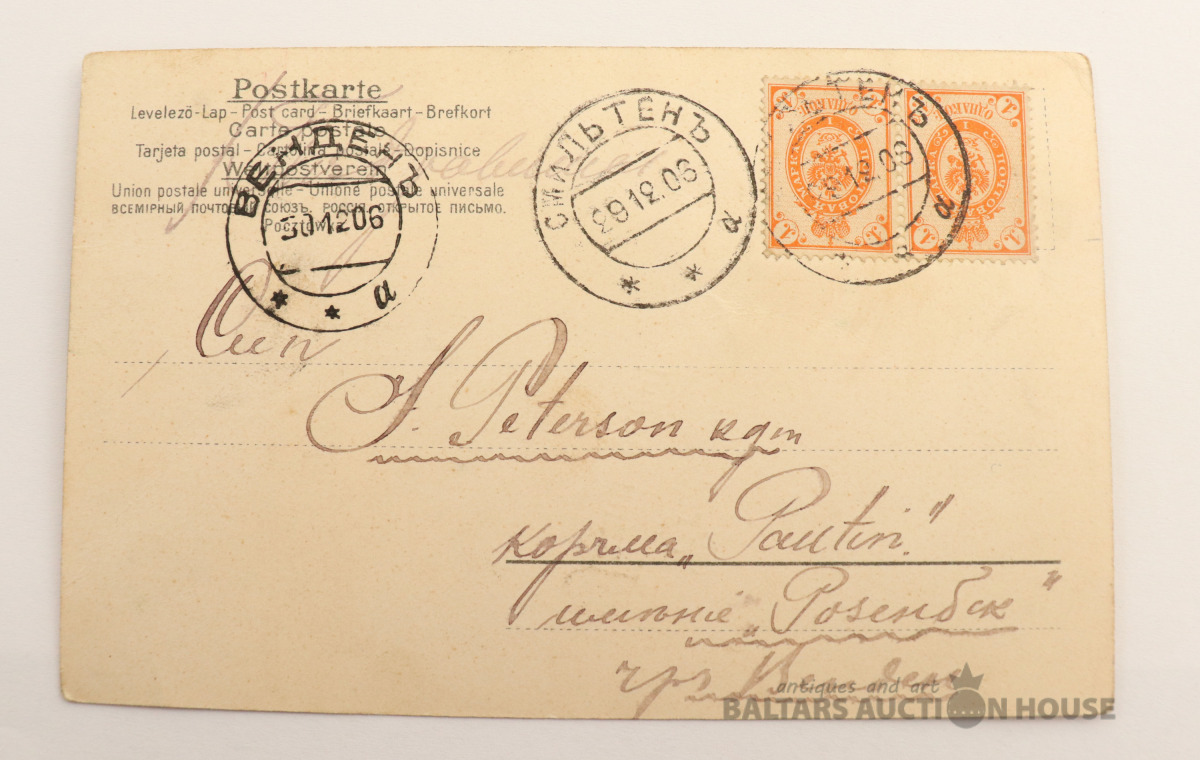 Postkarte
Levelező-Lap - Post card - Briefkaart - Brefkort
Carte postale
Tarjeta postal - Cartolina postale - Dopisnice
Weltpostverein
Union postale universelle - Unione postale universale
ВСЕМІРНЫЙ ПОЧТОВЫЙ СОЮЗЪ. РОССІЯ. ОТКРЫТОЕ ПИСЬМО.
Pocztówka
ВЕНДЕНЪ
30.12.06
а
СМИЛЬТЕНЪ
29.12.06
а
29.12.06
а
1
1
1
1
J. Peterson
корчма „Pautin“
имѣніе „Розенбек“
чрз Венден
antiques and art
BALTARS AUCTION HOUSE